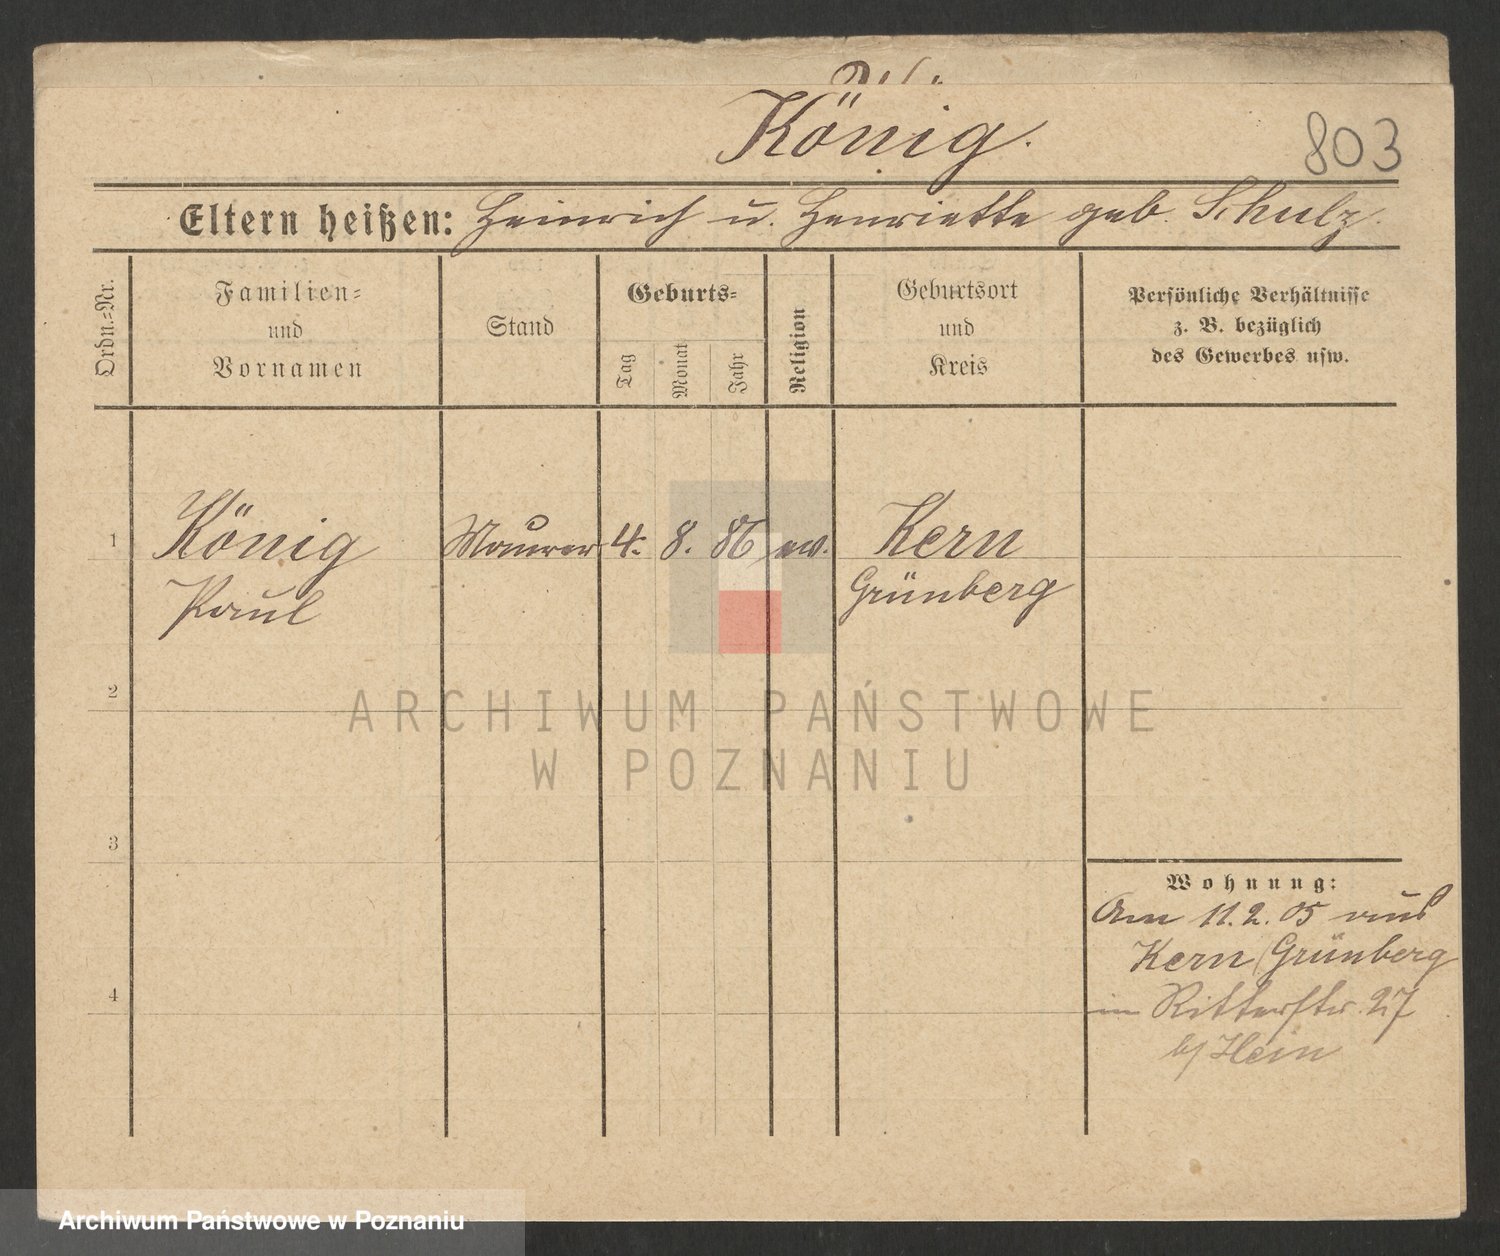 König.
803
Eltern heißen: Heinrich u. Henriette geb. Schulz.
Ordn.=Nr.
Familien=
und
Vornamen
Stand
Geburts=
Tag
Monat
Jahr
Religion
Geburtsort
und
Kreis
Persönliche Verhältnisse
z. B. bezüglich
des Gewerbes usw.
1
König
Paul
Maurer
4.
8.
86
ev.
Kern
Grünberg
2
ARCHIWUM PAŃSTWOWE
W POZNANIU
3
4
Wohnung:
Am 11.2.05 aus
Kern/Grünberg
in Ritterstr. 27
b/ Hein
Archiwum Państwowe w Poznaniu